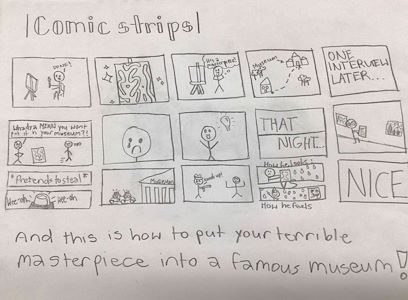 Comic strips
DONE!
It's a masterpiece!
Museum
ONE
INTERVIEW
LATER...
MEAN you want
put it in your museum??
THAT
NIGHT...
*Pretends to steal*
Wee-oh
Wee-oh
Museum
Hands up!
How he looks
How he feels
NICE
And this is how to put your terrible
masterpiece into a famous museum!